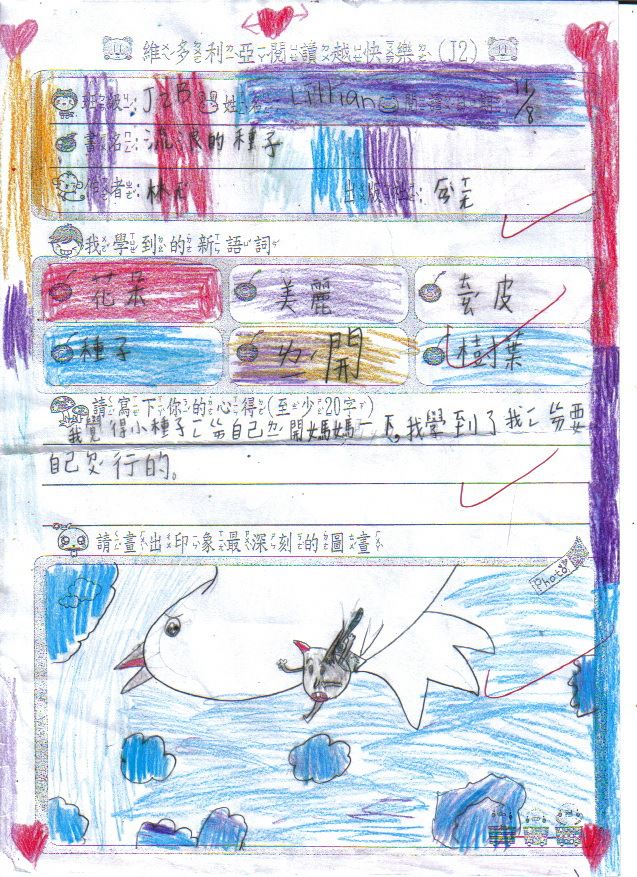 維多利亞閱讀越快樂(J2)
班級:J2B 姓名:Lillian 閱讀日期:11/8
書名:流浪的種子
作者:林 出版社:
我學到的新語詞
花朵 美麗 皮
種子 開 樹葉
請寫下你的心得(至少20字)
我覺得小種子 自己 開媽媽一下,我學到了我 要
自己 行的。
請畫出印象最深刻的圖畫
Photo